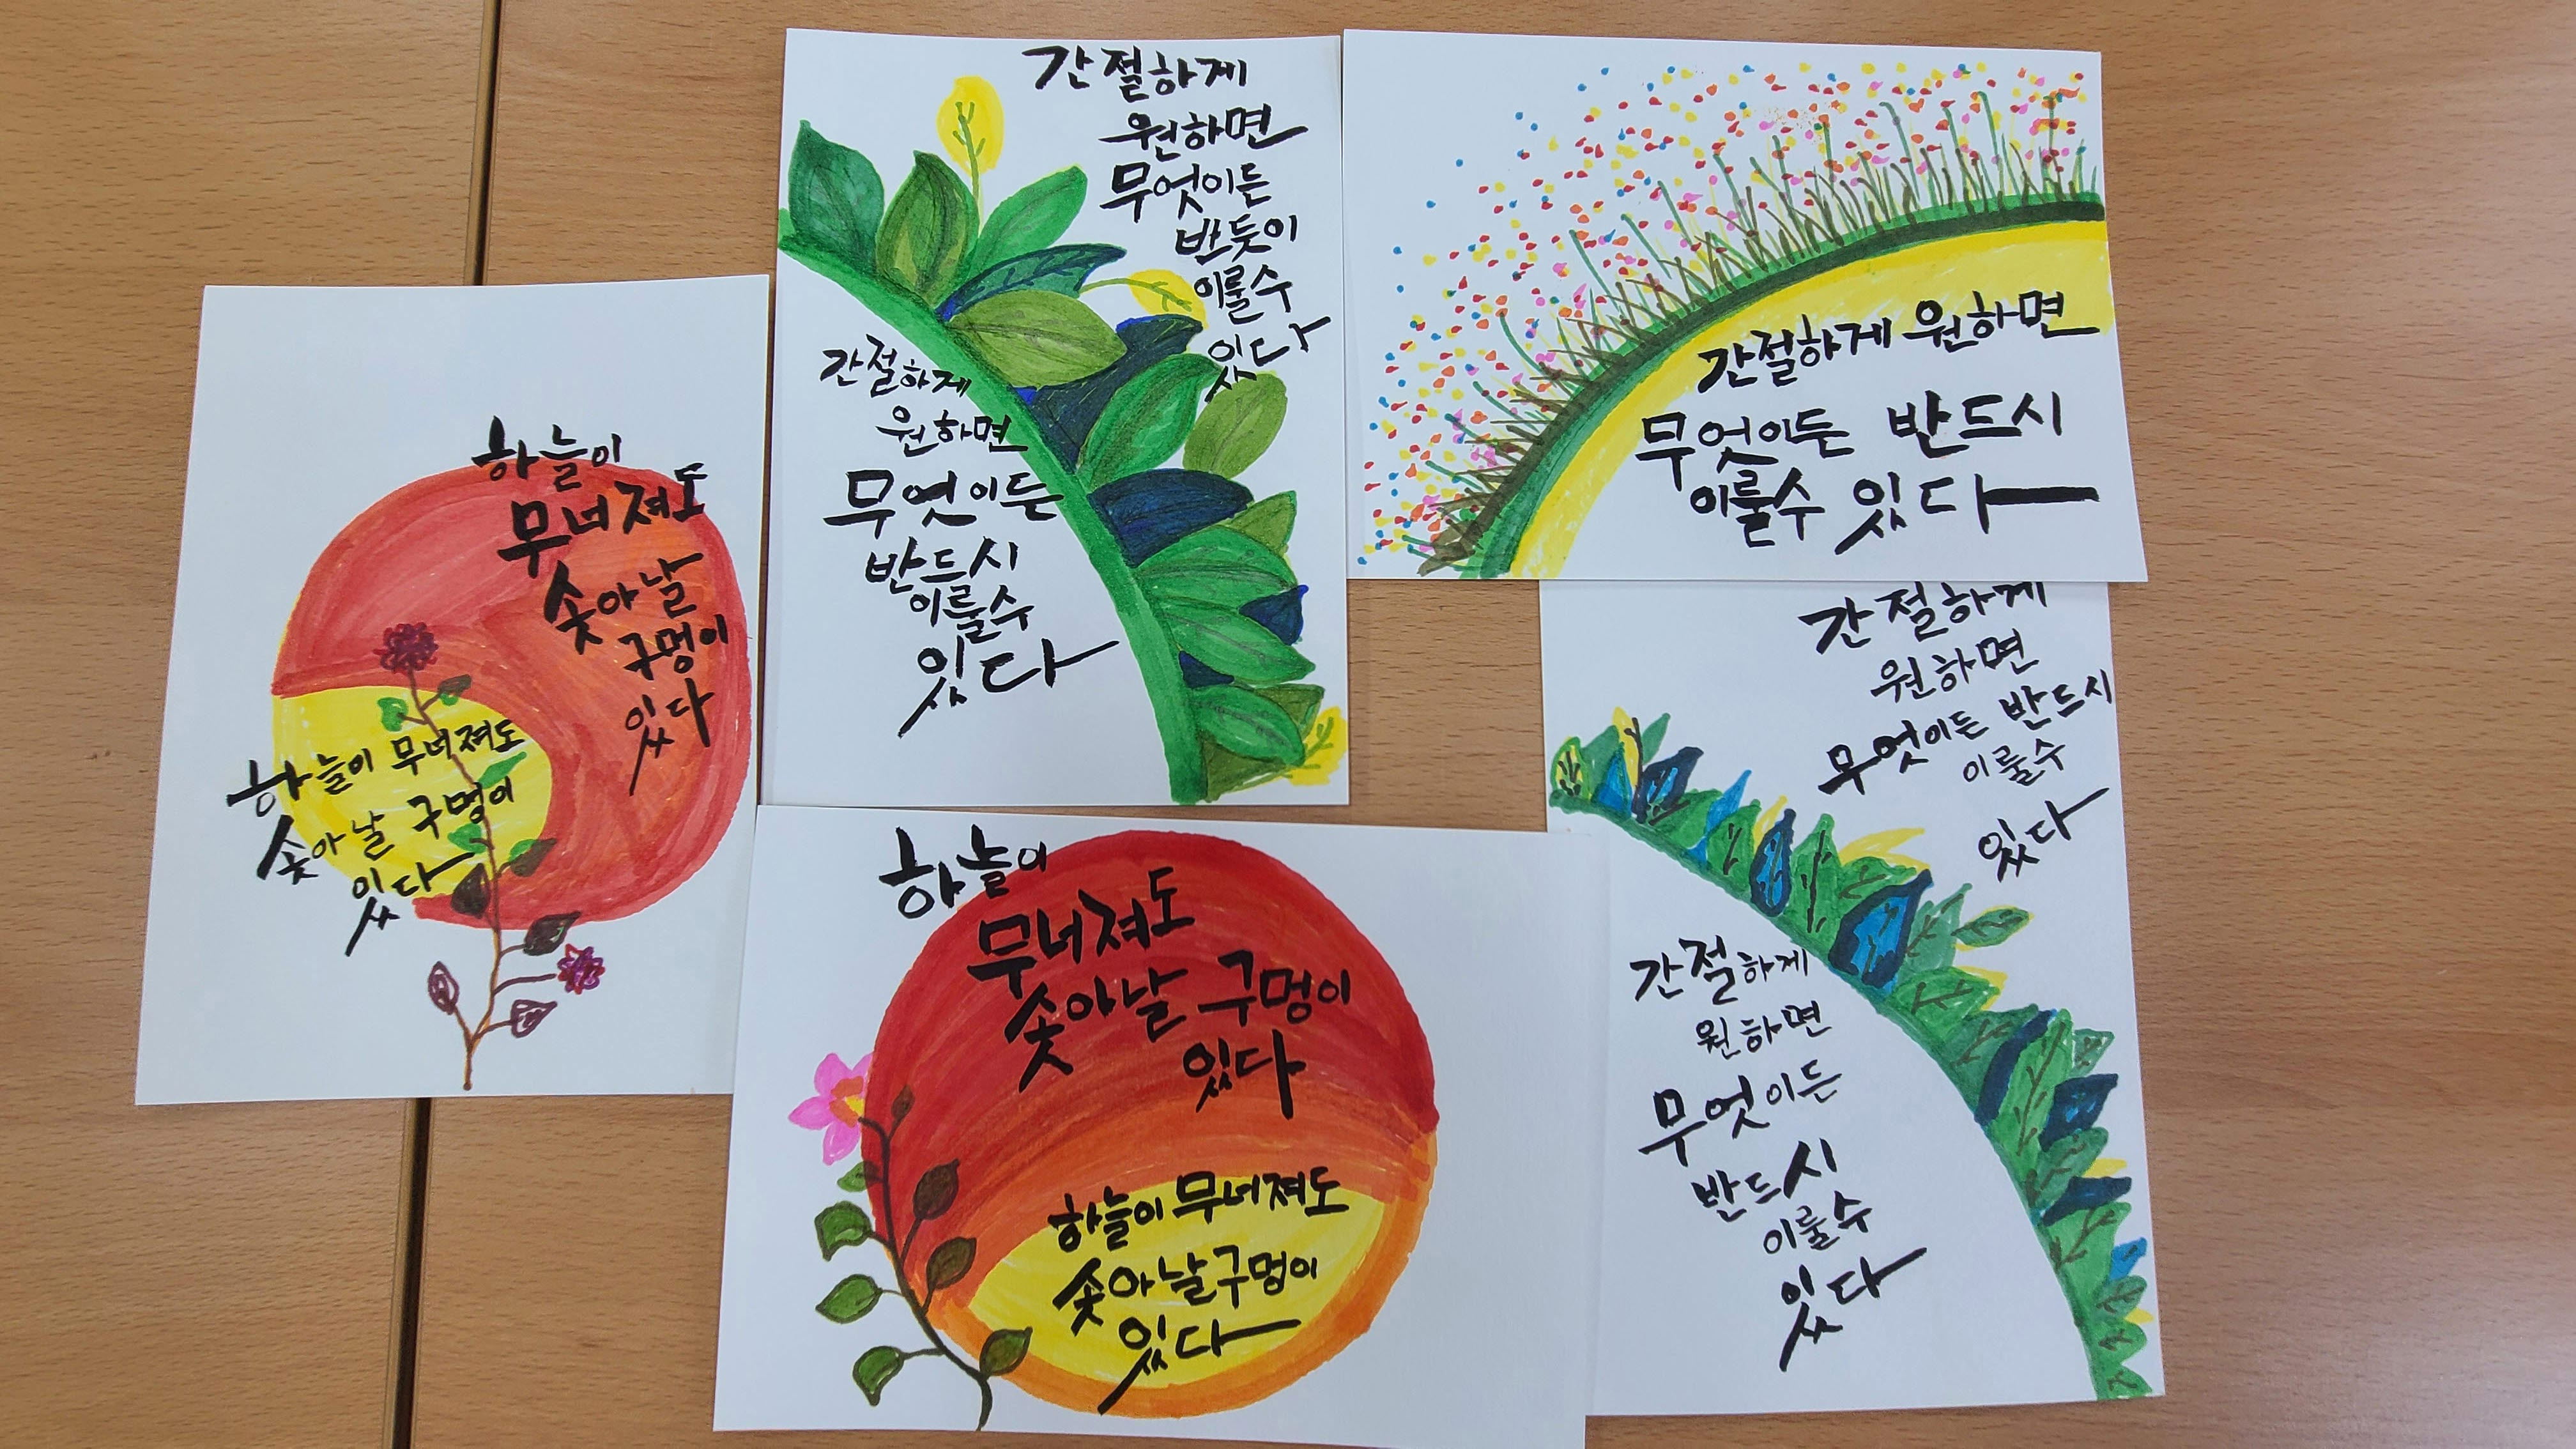 하늘이
무너져도
솟아날
구멍이
있다
하늘이 무너져도
솟아날 구멍이
있다
간절하게
원하면
무엇이든
반듯이
이룰수
있다
간절하게
원하면
무엇이든
반드시
이룰수
있다
간절하게 원하면
무엇이든 반드시
이룰수 있다
하늘이
무너져도
솟아날 구멍이
있다
하늘이 무너져도
솟아날 구멍이
있다
간절하게
원하면
무엇이든 반드시
이룰수
있다
간절하게
원하면
무엇이든
반드시
이룰수
있다